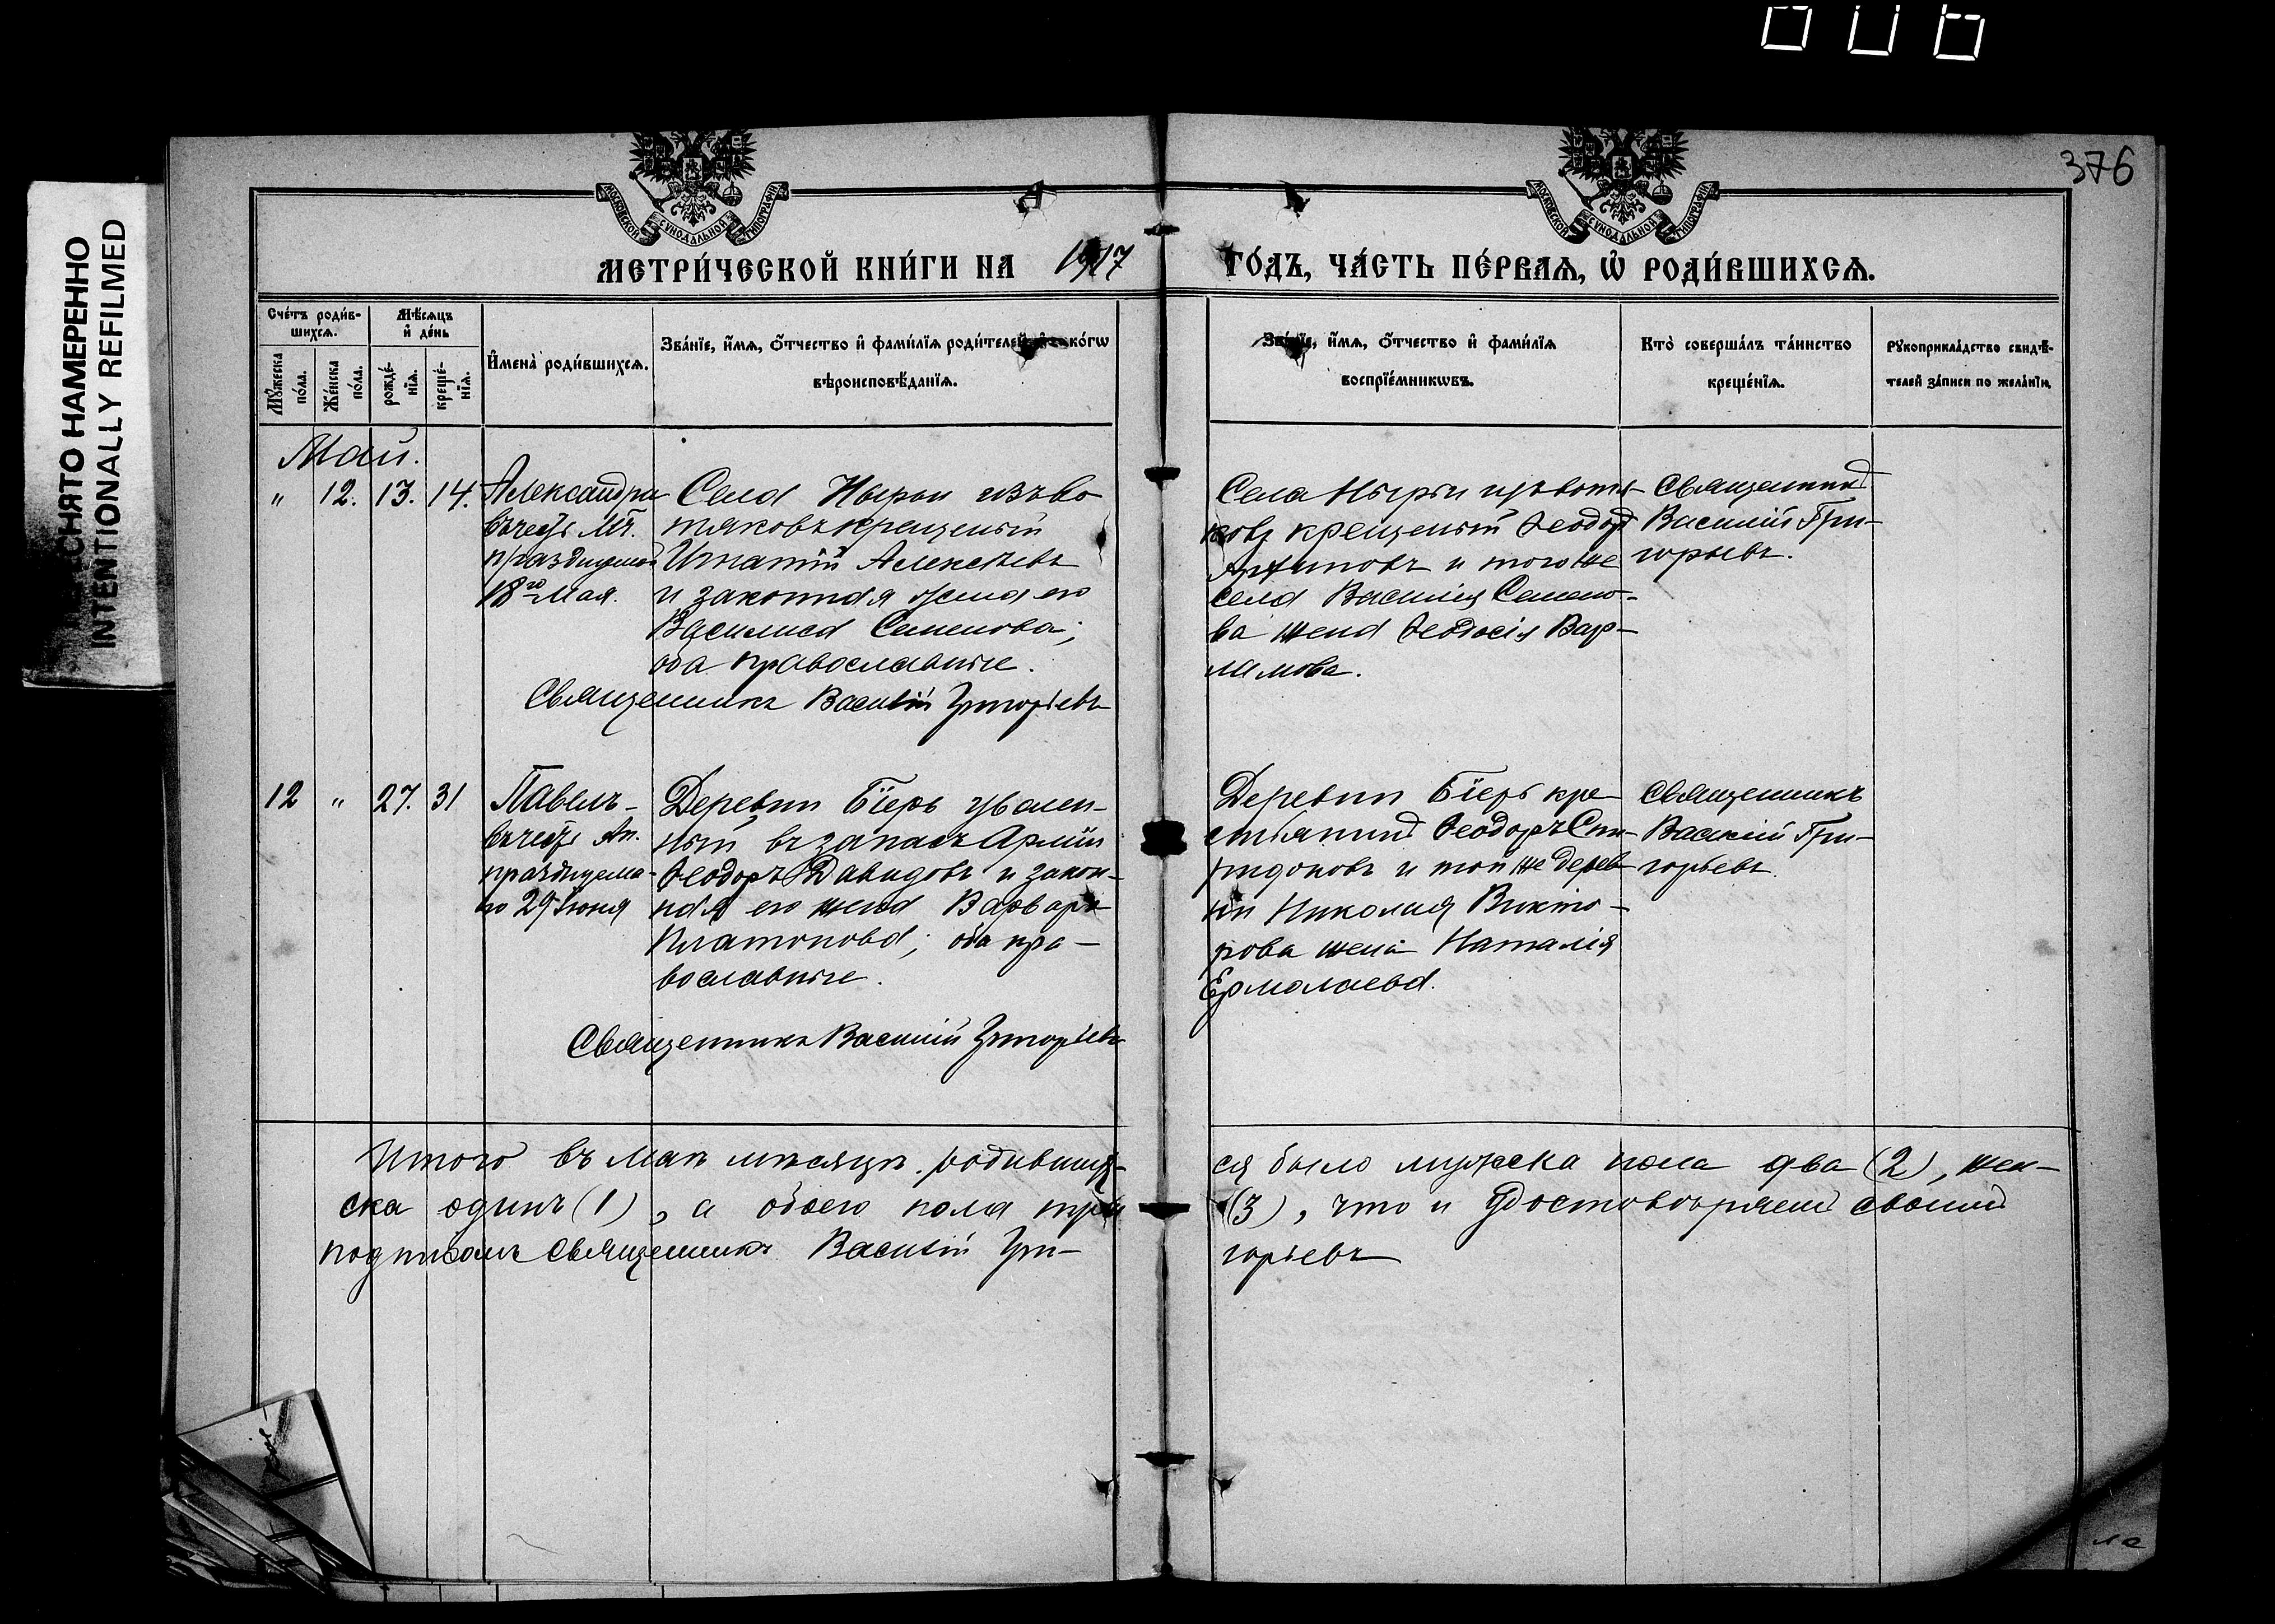 006
376
СНЯТО НАМЕРЕННО
INTENTIONALLY REFILMED
МОСКОВСКОЙ СѴНОДАЛЬНОЙ ТИПОГРАФІИ
МОСКОВСКОЙ СѴНОДАЛЬНОЙ ТИПОГРАФІИ
МЕТРИ́ЧЕСКОЙ КНИ́ГИ НА 1917 ГО́ДЪ, ЧА́СТЬ ПЕ́РВАѦ, Ѡ҆ РОДИ́ВШИХСѦ.
Сче́тъ роди́в-
шихсѧ.
Мꙋ́жеска
по́ла.
Же́нска
по́ла.
Мѣ́сяцъ
и҆ де́нь
рожде́-
нїѧ.
креще́-
нїѧ.
И҆мена̀ роди́вшихсѧ.
Зва́нїе, и҆́мѧ, ѻ҆́тчество и҆ фами́лїѧ роди́телей, и҆ како́гѡ
вѣроисповѣ́данїѧ.
Зва́нїе, и҆́мѧ, ѻ҆́тчество и҆ фами́лїѧ
воспрїе́мникѡвъ.
Кто̀ соверша́лъ та́инство
креще́нїѧ.
Рꙋкоприкла́дство свидѣ́-
телей за́писи по жела́нїю.
Май.
" 12. 13. 14.
Александра
въ честь Мч.
празднуемой
18го Мая.
Села Нырьи изъ во
тяковъ крещеный
Игнатій Алексѣевъ
и законная жена его
Василиса Семенова;
оба православные.
Священникъ Василій Григорьевъ
Села Нырьи изъ вотя-
ковъ крещеный Ѳеодоръ
и того же
села Василія Семено-
ва жена Ѳеодосія Вар-
ламова.
Священникъ
Василій Гри-
горьевъ.
12 " 27. 31
Павелъ-
въ честь Ап.
празднуема-
го 29 Іюня
Деревни Бїерь уволен-
ный въ запасъ Арміи
Ѳеодоръ Давидовъ и закон-
ная его жена Варвара
Платонова; оба пра-
вославные.
Священникъ Василій Григорьевъ
Деревни Бїерь кре-
стьянинъ Ѳеодоръ Спи-
ридоновъ и той же дерев-
ни Николая Викто-
рова жена Наталія
Ермолаева.
Священникъ
Василій Гри-
горьевъ.
Итого въ Маѣ мѣсяцѣ родивших-
ся было мужска пола два (2), жен-
ска одинъ (1), а обоего пола три
(3), что и удостовѣряемъ своимъ
подписомъ Священникъ Василій Гри-
горьевъ